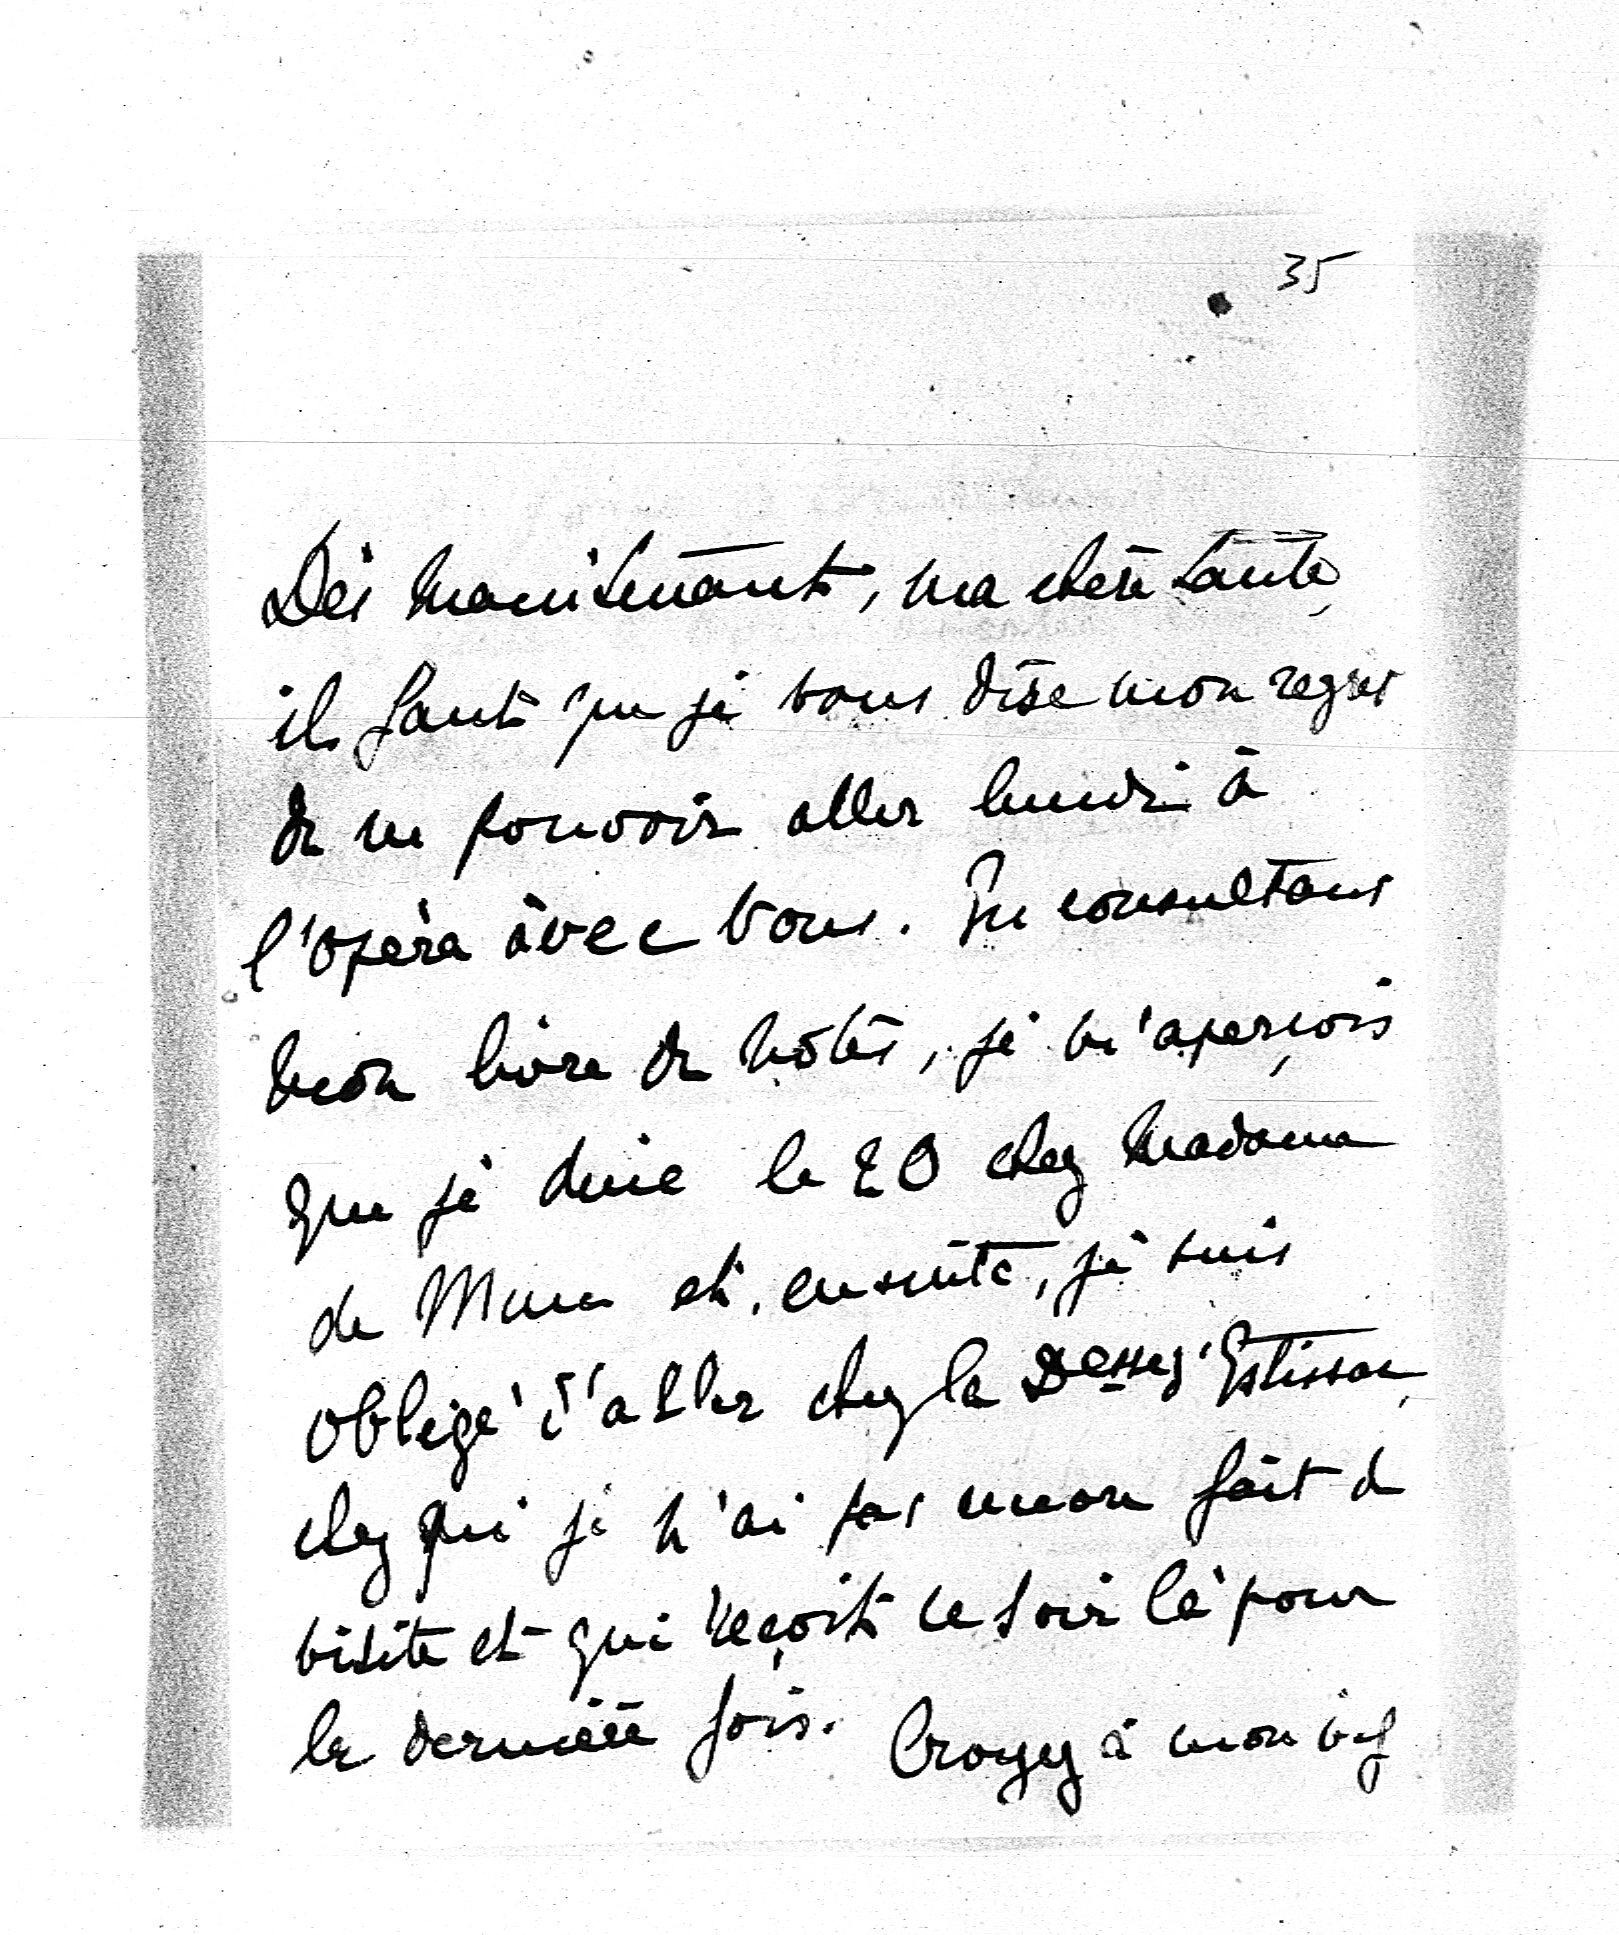 35
Dès maintenant, ma chère tante,
il faut que je vous dise mon regret
de ne pouvoir aller lundi à
l'opéra avec vous. En consultant
mon livre de notes, je m'aperçois
que je dîne le 20 chez Madame
de Mun et, ensuite, je suis
obligé d'aller chez la Desse d'Estissac,
chez qui je n'ai pas encore fait de
visite et qui reçoit ce soir là pour
la dernière fois. Croyez à mon vif